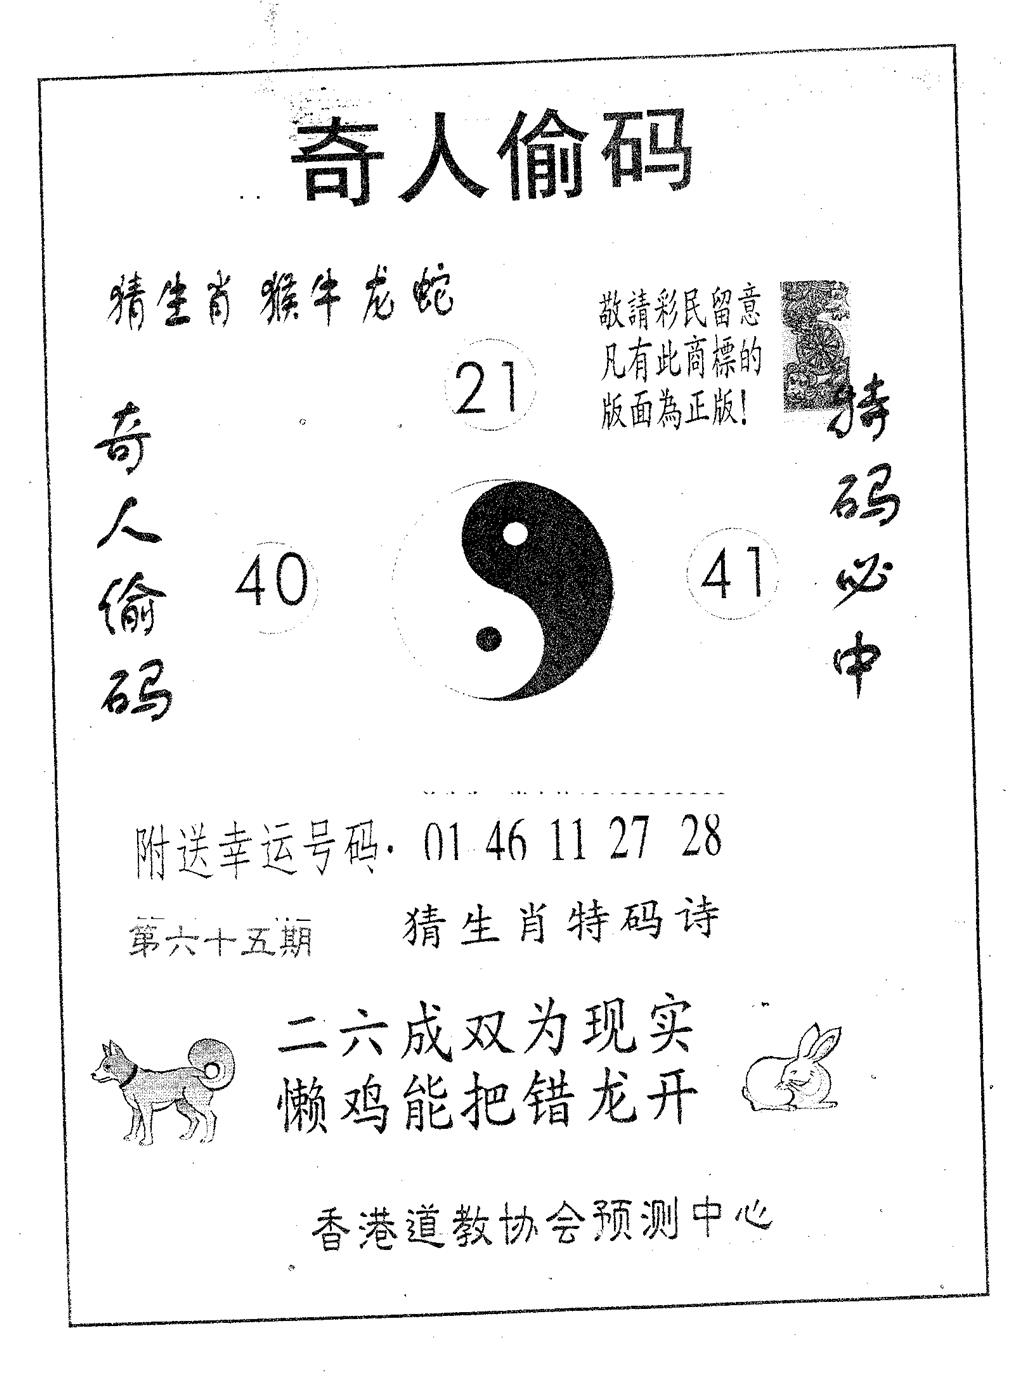 奇人偷码
猜生肖 猴牛龙蛇
敬請彩民留意
凡有此商標的
版面為正版!
21
奇人偷码
特码必中
40
41
附送幸运号码. 01 46 11 27 28
第六十五期
猜生肖特码诗
二六成双为现实
懒鸡能把错龙开
香港道教协会预测中心